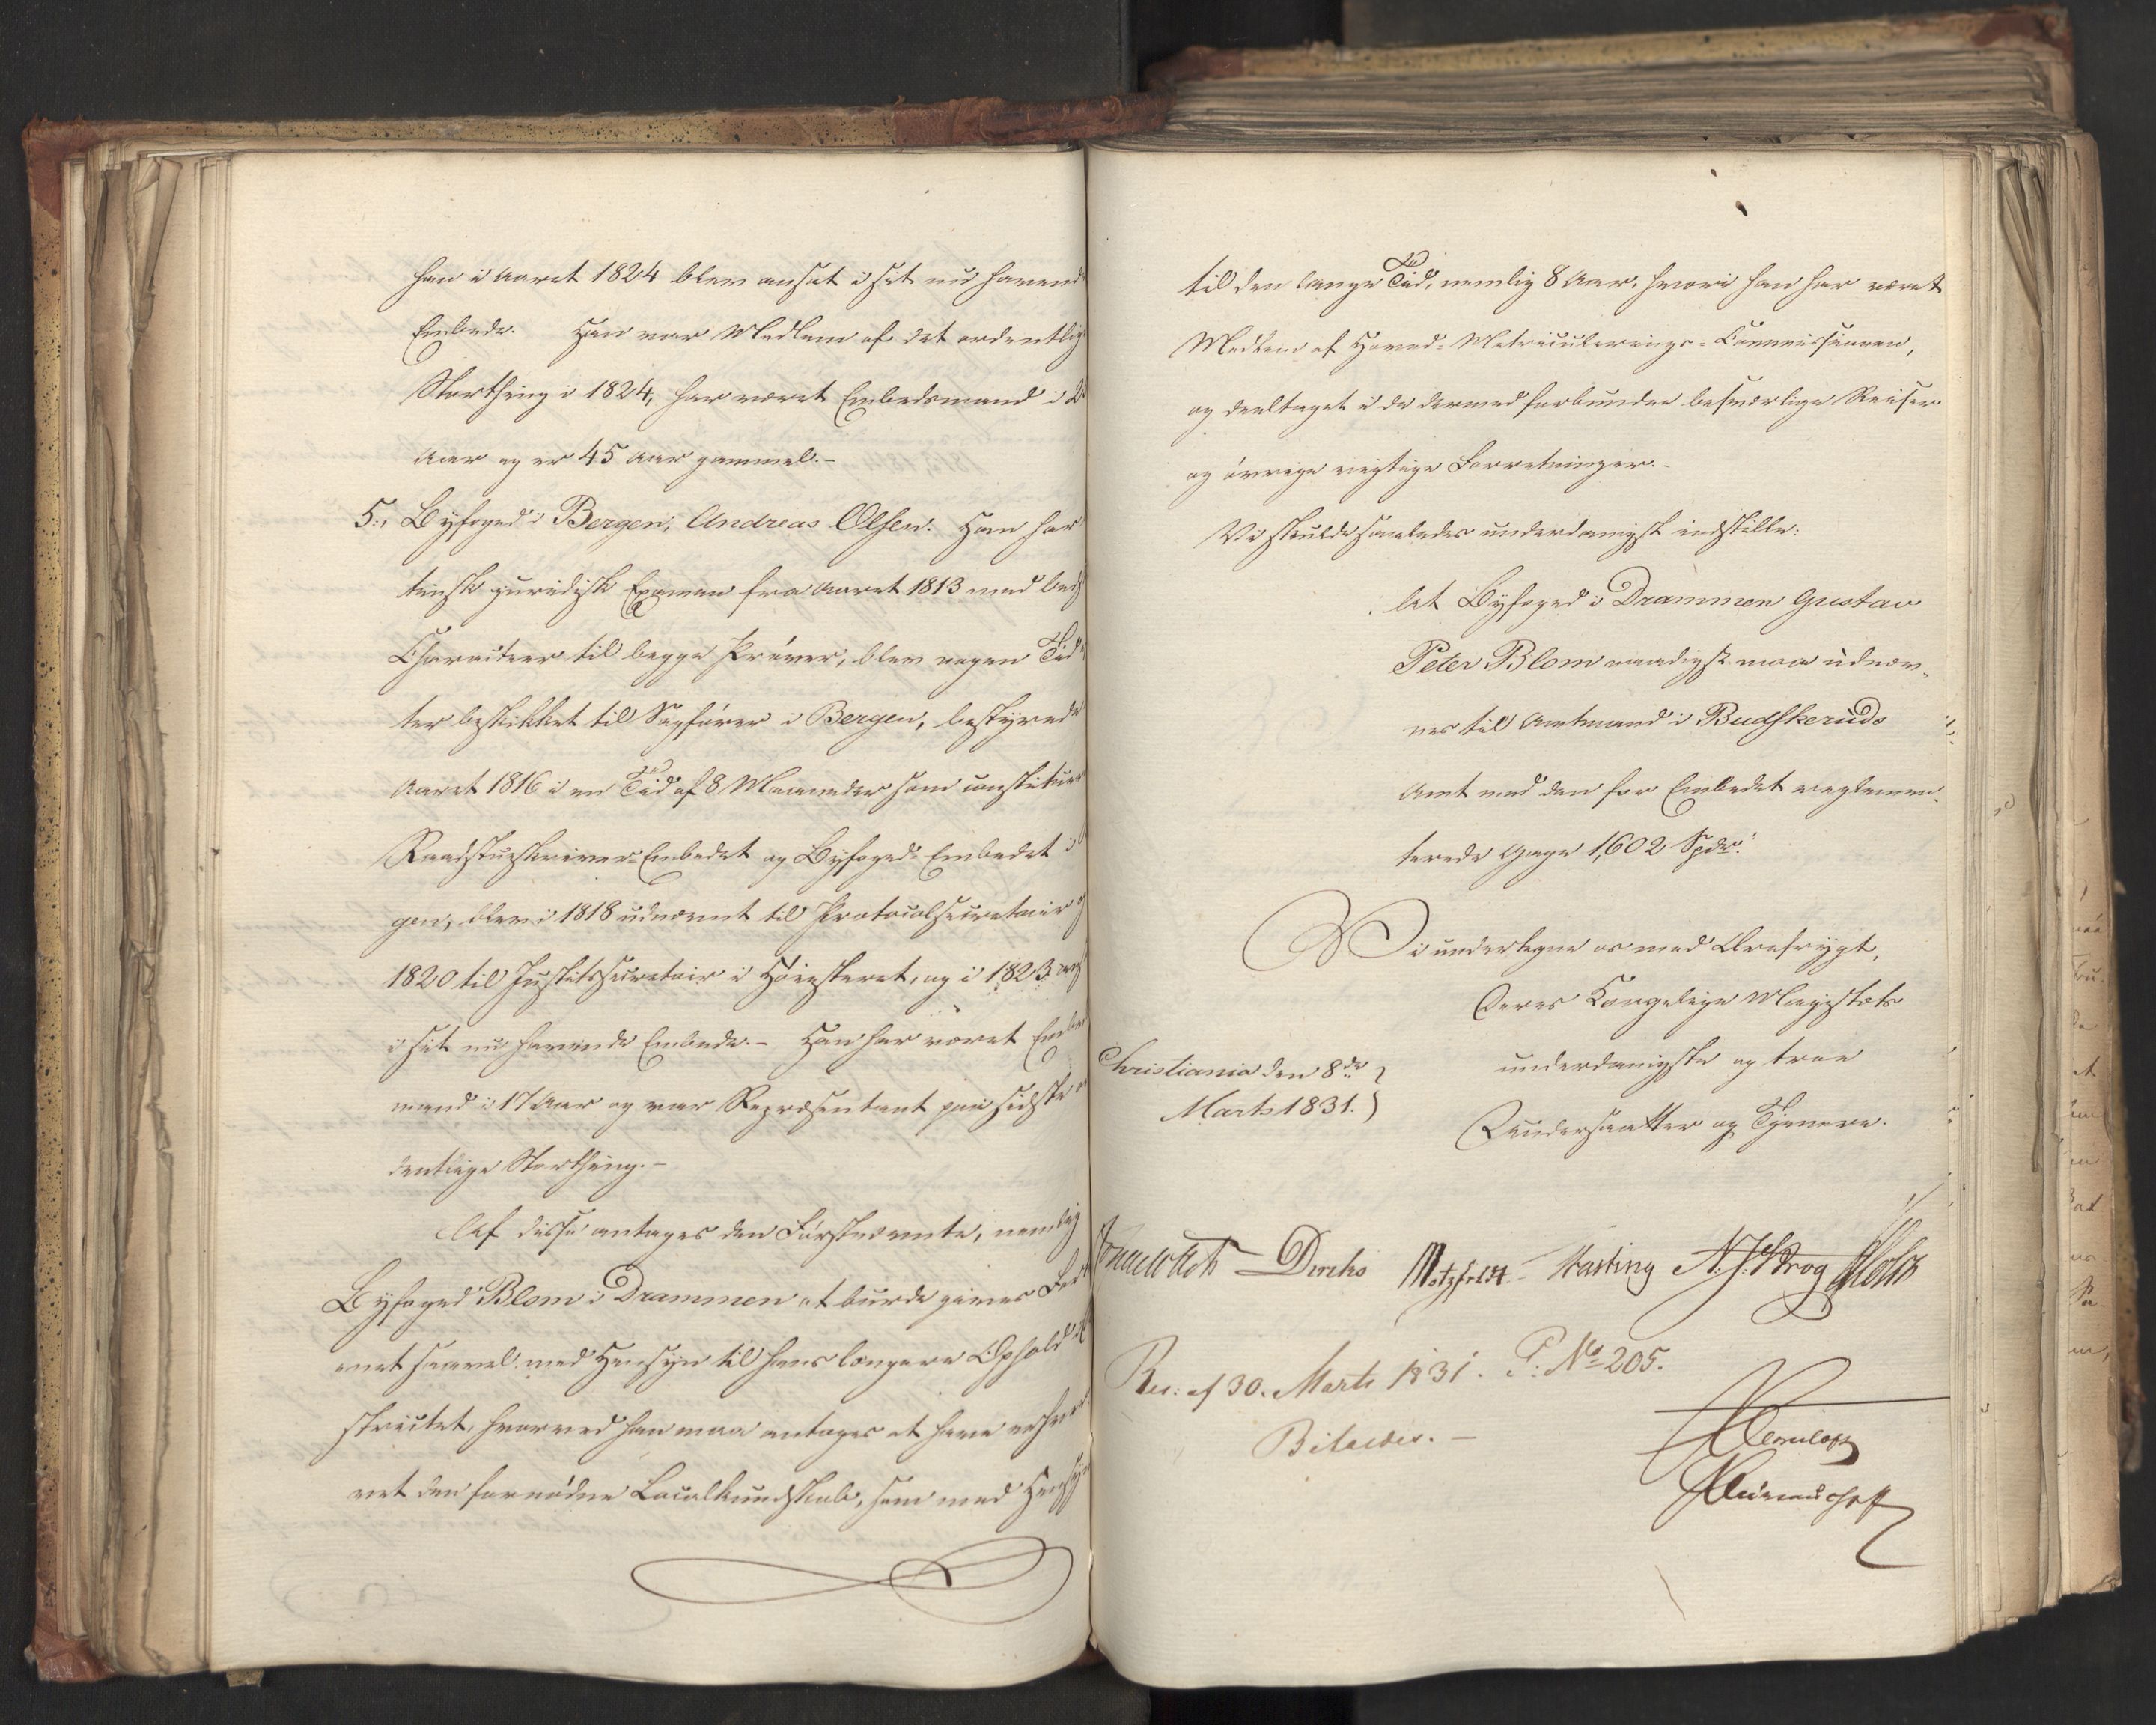 han i Aaret 1824 blev ansat i sit nu havende
Embede. Han var Medlem af det ordentlige
Storthing i 1824, har været Embedsmand i 2
Aar og er 45 Aar gammel.-
5., Byfoged i Bergen, Andreas Olsen. Han har
juridisk Examen fra Aaret 1813 med bedst
Character til begge Prøver, blev nogen Tid
ter beskikket til Sagfører i Bergen, bestyrede
Aaret 1816 i en Tid af 8 Maaneder som constitueret
Raadstueskriver-Embedet og Byfoged-Embedet i
gen, blev i 1818 udnævnt til Protocolsecretair og
1820 til Justitssecretair i Høiesteret, og i 1823
i sit nu havende Embede.- Han har været Embeds
mand i 17 Aar og var Repræsentant paa sidste
dentlige Storthing.-
Af disse antages den Førstnævnte, nemlig
Byfoged Blom i Drammen at burde gives For
net saavel med Hensyn til hans længere Ophold
strictet, hvorved han maa antages at have erhver
vet den fornødne Localkundskab, som med Hensyn
til den lange Tid, nemlig 8 Aar, hvori han har været
Medlem af Hoved-Matriculerings-Commissionen,
og deeltaget i de dermed forbundne besværlige Reiser
og øvrige vigtige Forretninger.-
Vi skulde saaledes underdanigst indstille:
At Byfoged i Drammen Gustav
Peter Blom naadigst maa udnæv-
nes til Amtmand i Budskeruds
Amt med den for Embedet reglemen-
terede Gage 1,602 Spdr.
Vi undertegne os med Ærefrygt,
Deres Kongelige Majestæts
underdanigste og troe
Undersaatter og Tjenere.
Christiania den 8de
Marts 1831.
Diriks Motzfeldt Fasting N. J. Krog Holst
Res: af 30. Marts 1831. P: No 205.
Bifaldes.-